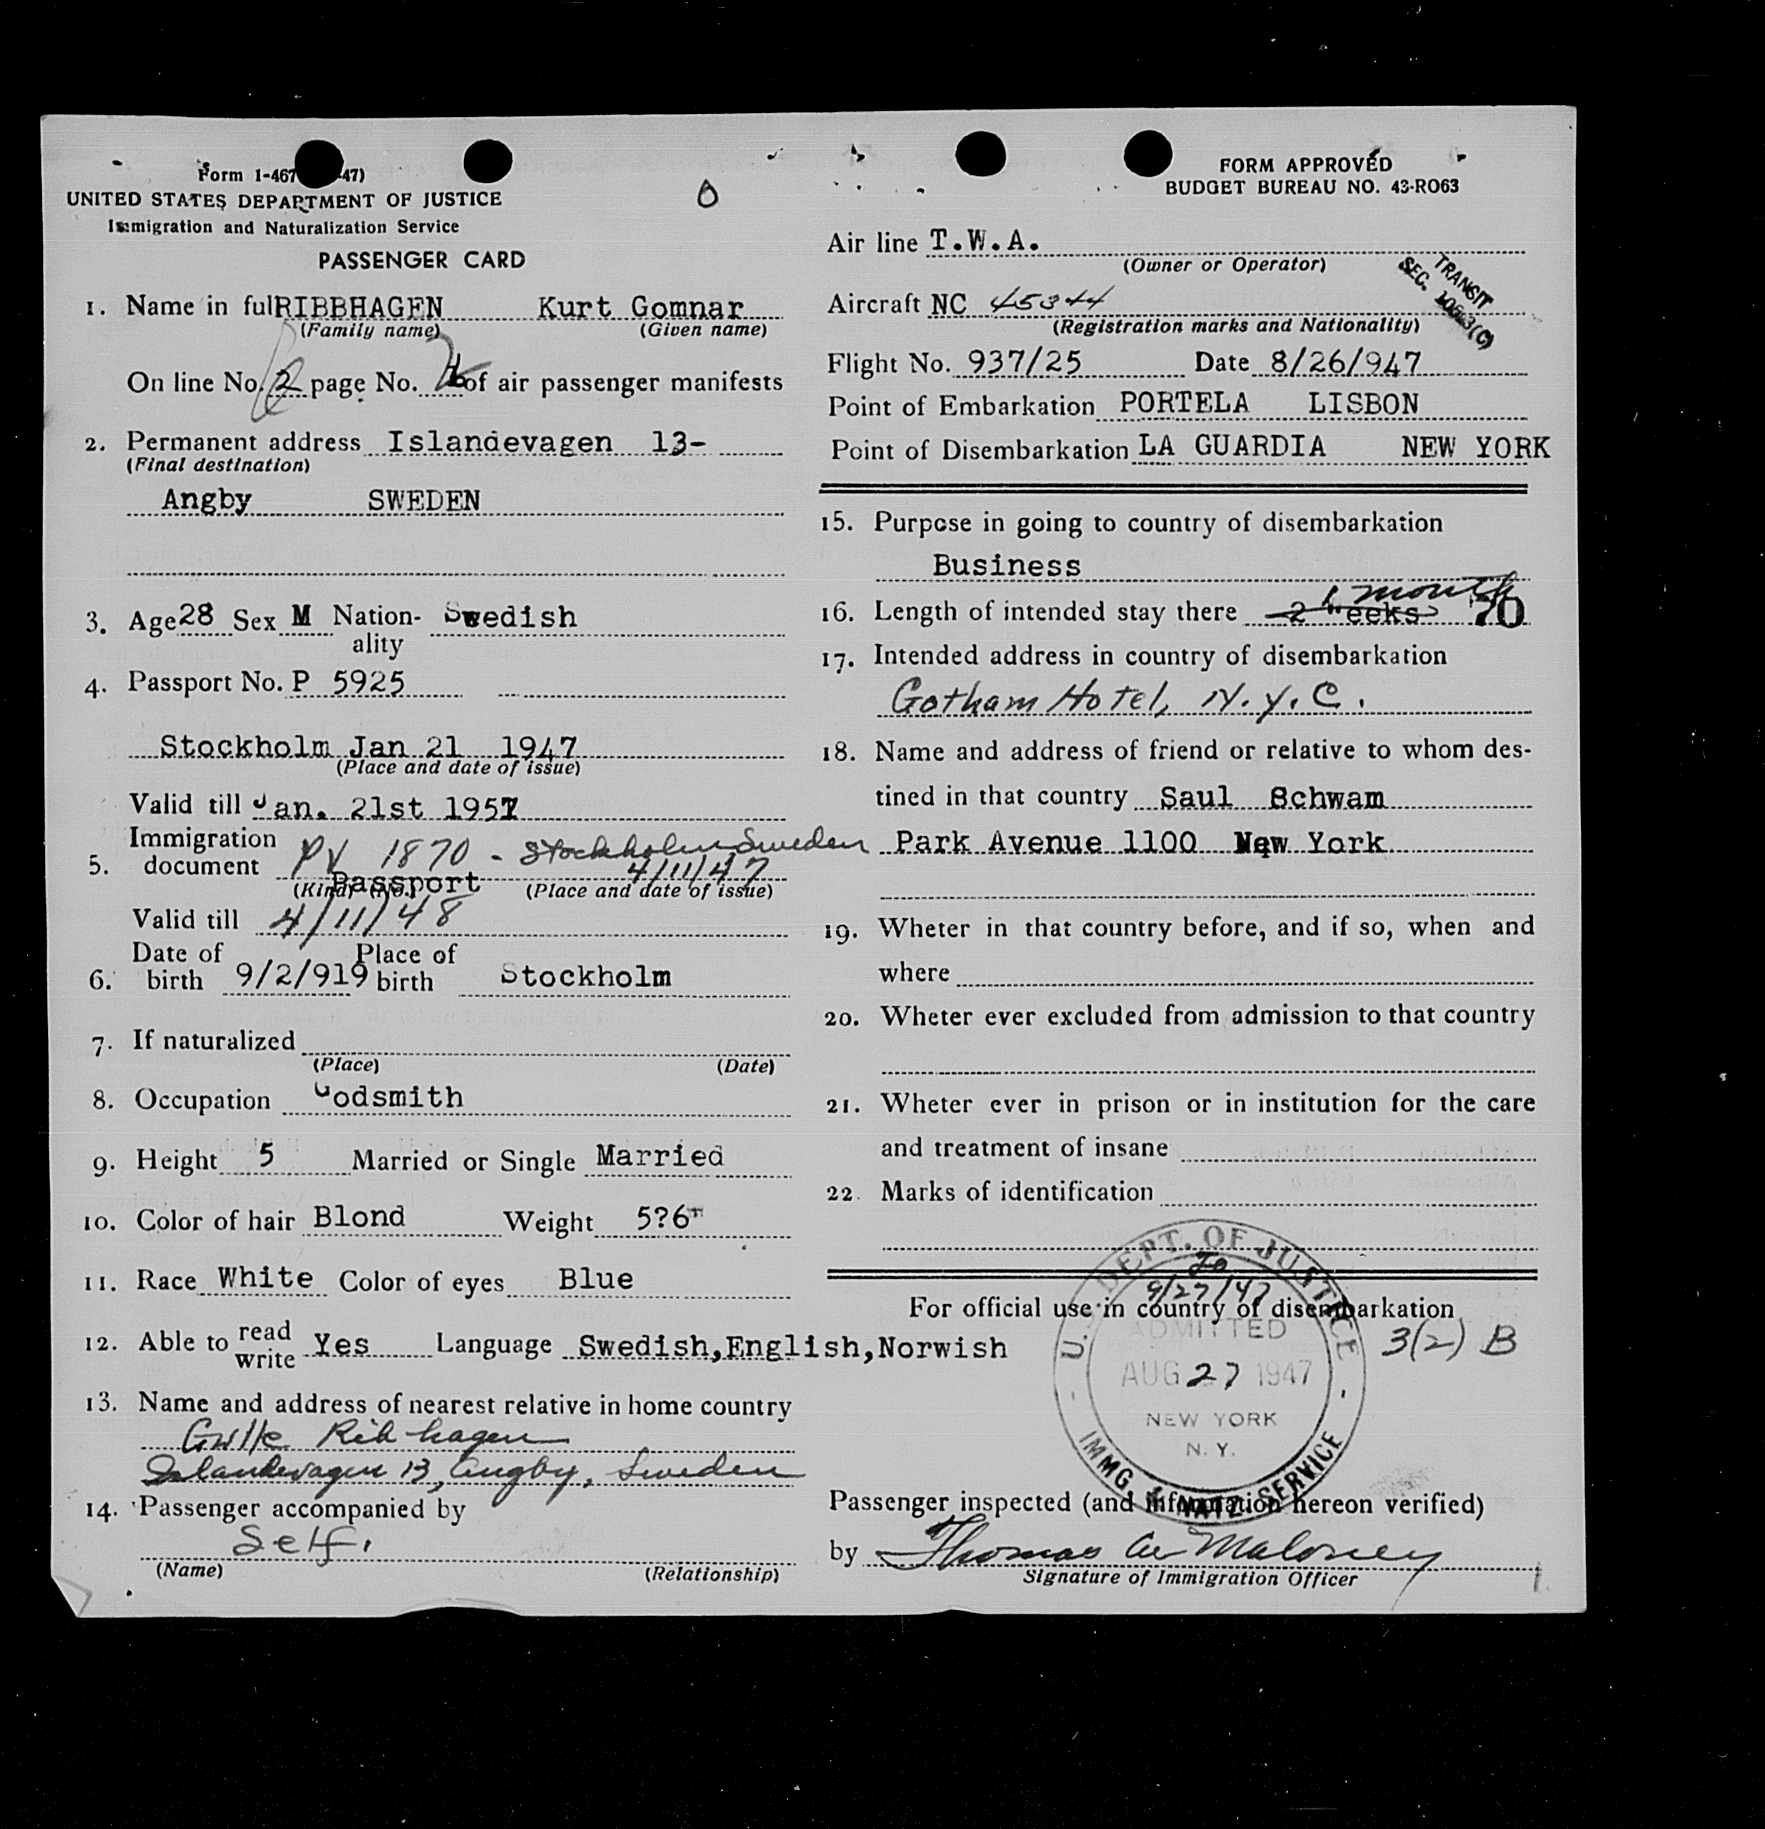 Form 1-467 47)
UNITED STATES DEPARTMENT OF JUSTICE
Immigration and Naturalization Service
PASSENGER CARD
1. Name in ful RIBBHAGEN Kurt Gomnar
(Family name) (Given name)
On line No. 2 page No. of air passenger manifests
2. Permanent address Islandevagen 13-
(Final destination)
Angby SWEDEN
3. Age 28 Sex M Nation-ality Swedish
4. Passport No. P 5925
Stockholm Jan 21 1947
(Place and date of issue)
Valid till Jan. 21st 1957
5. Immigration document PV 1870 - Stockholm Sweden
4/11/47
Passport
(Kind) (No.) (Place and date of issue)
Valid till 4/11/48
6. Date of birth 9/2/919 Place of birth Stockholm
7. If naturalized
(Place) (Date)
8. Occupation Godsmith
9. Height 5 Married or Single Married
10. Color of hair Blond Weight 5?6"
11. Race White Color of eyes Blue
12. Able to read write Yes Language Swedish,English,Norwish
13. Name and address of nearest relative in home country
Islandevagen 13, Angby, Sweden
14. Passenger accompanied by
Self.
(Name) (Relationship)
FORM APPROVED
BUDGET BUREAU NO. 43-RO63
Air line T.W.A.
(Owner or Operator)
TRANSIT
SEC.
Aircraft NC 45344
(Registration marks and Nationality)
Flight No. 937/25 Date 8/26/947
Point of Embarkation PORTELA LISBON
Point of Disembarkation LA GUARDIA NEW YORK
15. Purpose in going to country of disembarkation
Business
1 month
16. Length of intended stay there 2 weeks 70
17. Intended address in country of disembarkation
Gotham Hotel, N.Y.C.
18. Name and address of friend or relative to whom des-
tined in that country Saul Schwam
Park Avenue 1100 New York
19. Wheter in that country before, and if so, when and
where
20. Wheter ever excluded from admission to that country
21. Wheter ever in prison or in institution for the care
and treatment of insane
22. Marks of identification
U.S. DEPT. OF JUSTICE
To
9/27/47
For official use in country of disembarkation
ADMITTED
3(2) B
AUG 27 1947
NEW YORK
N. Y.
IMMG. & NATZ. SERVICE
Passenger inspected (and information hereon verified)
by Thomas A Maloney
Signature of Immigration Officer